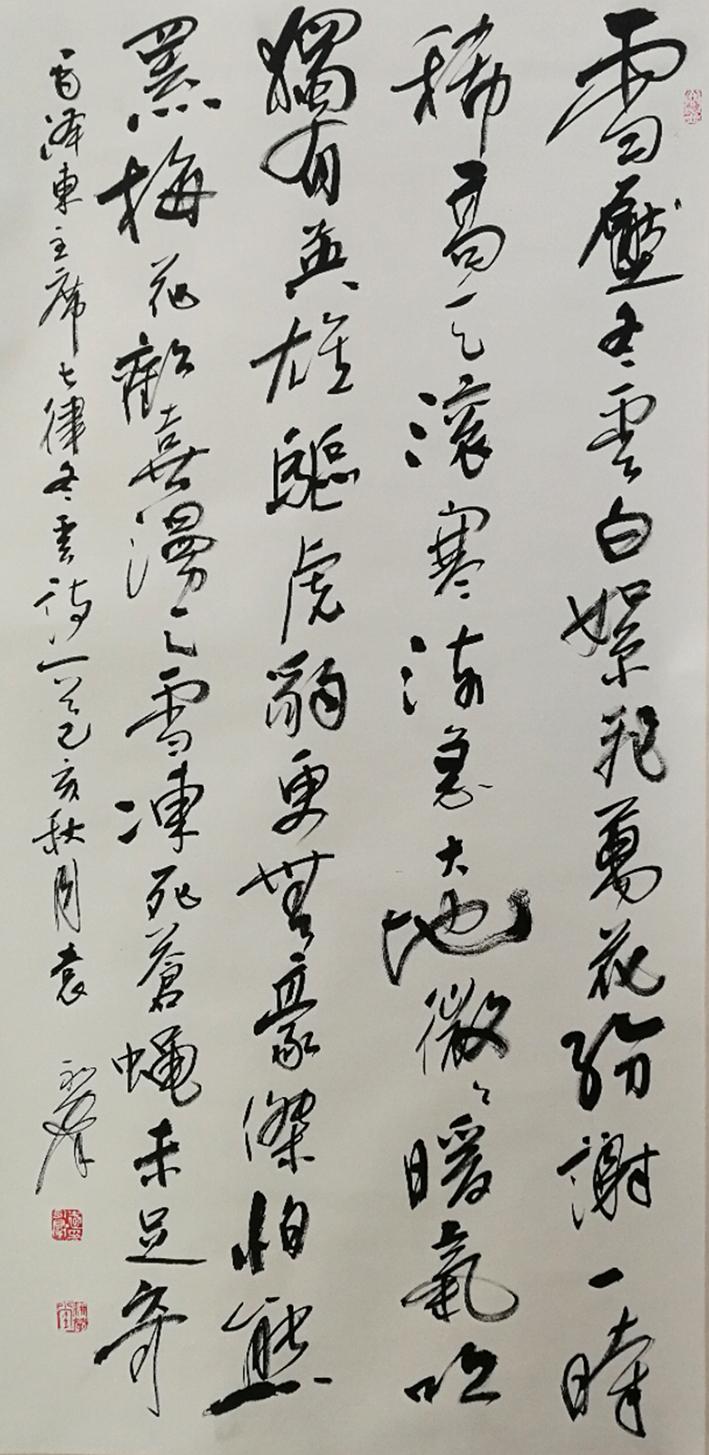 雪壓冬雲白絮飛萬花紛謝一時
稀高天滾〻寒流急大地微〻暖氣吹
獨有英雄驅虎豹更無豪傑怕熊
羆梅花歡喜漫天雪凍死蒼蠅未足奇
毛泽東主席七律冬雲诗一首己亥秋月袁